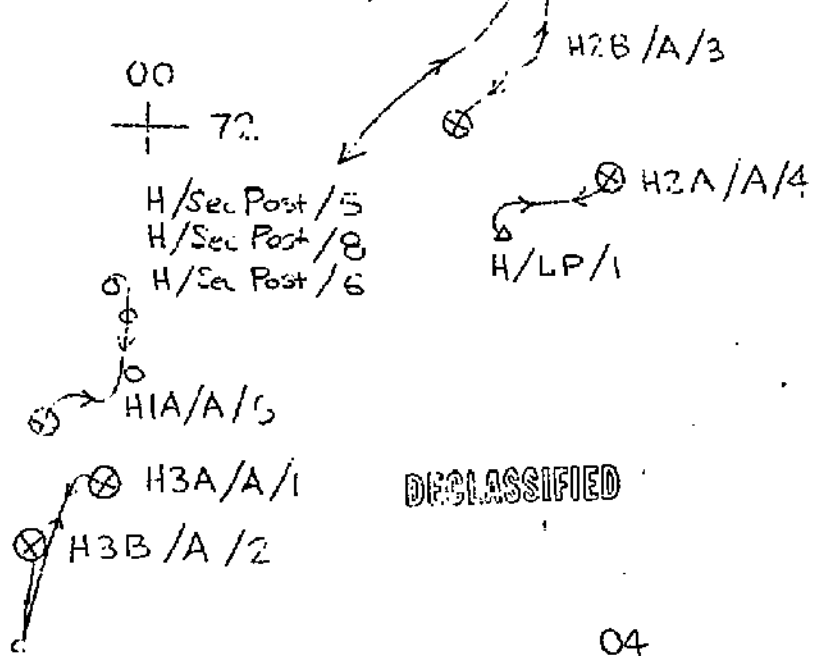 H2B/A/3
00
72
H/Sec Post/5
H/Sec Post/8
H/Sec Post/6
H2A/A/4
H/LP/1
H1A/A/
H3A/A/1
DECLASSIFIED
H3B/A/2
04